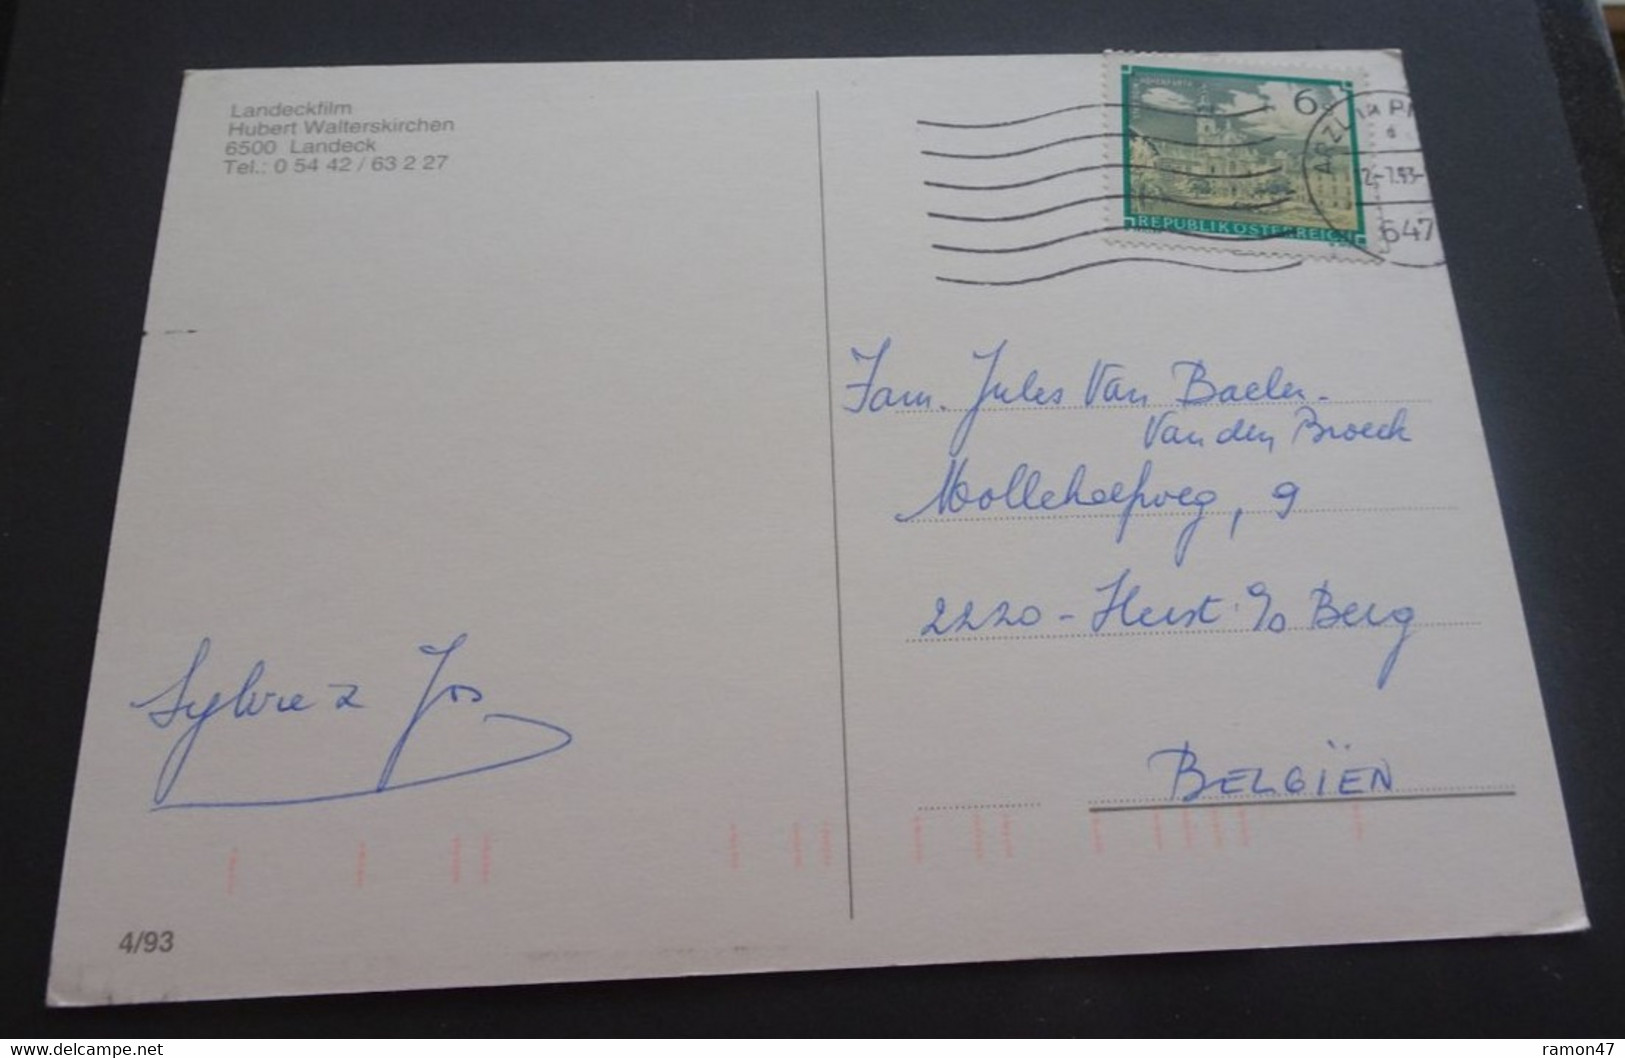 Landeckfilm
Hubert Walterskirchen
6500 Landeck
Tel.: 0 54 42 / 63 2 27
6
REPUBLIK ÖSTERREICH
ARZL IM PI
2.-7.93-
647
Fam. Jules Van Baelen-
Van den Broeck
9
2220 - Heist o/d Berg
BELGIËN
Sylvie & Jos
4/93
delcampe.net
ramon47